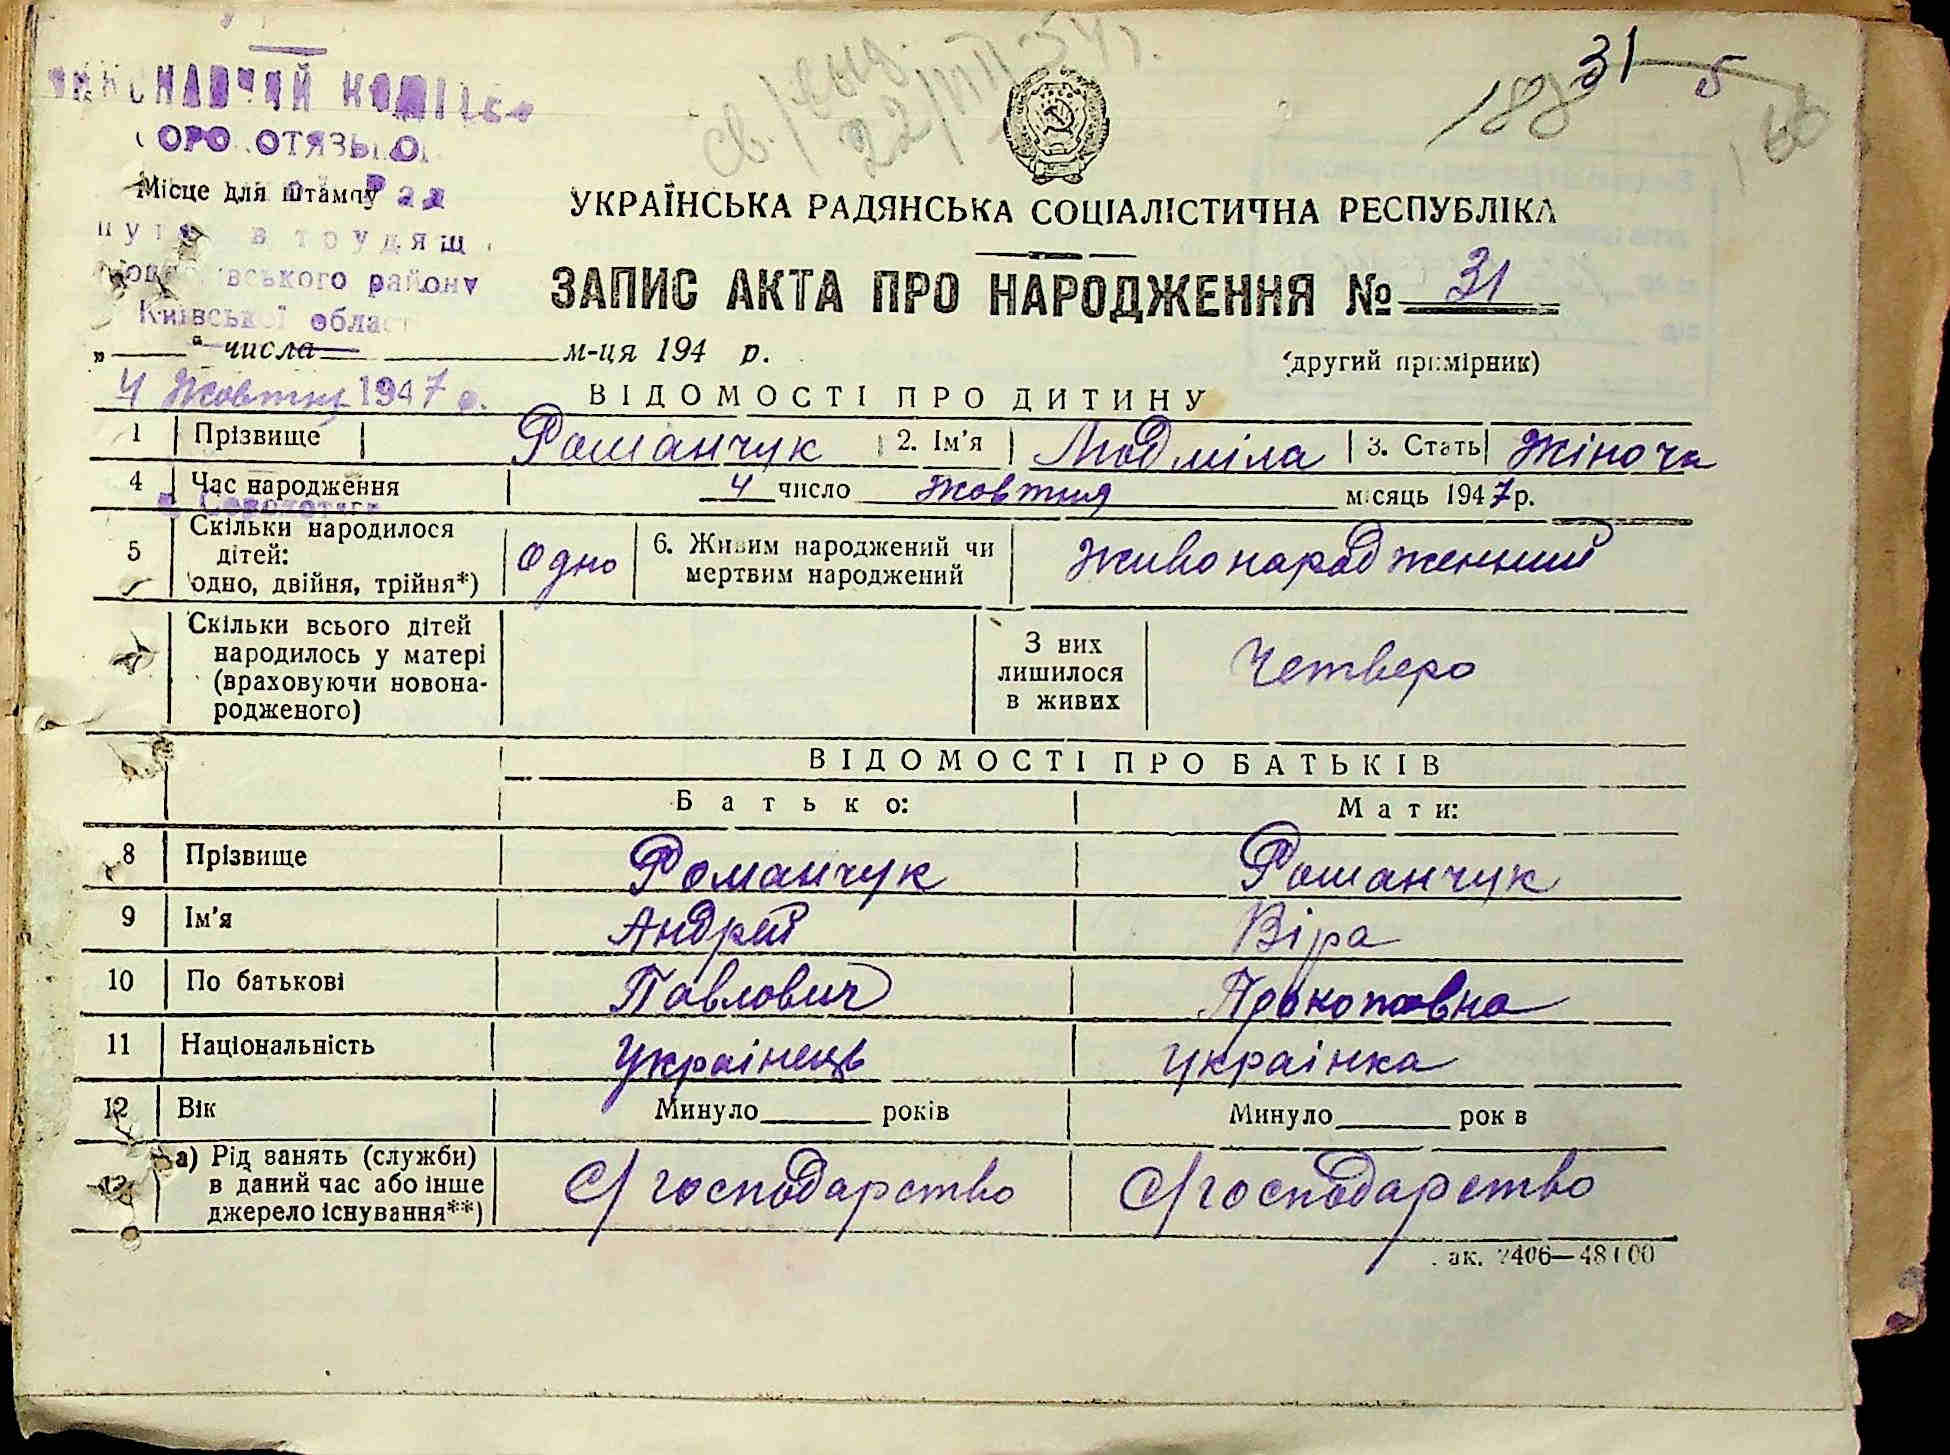 31 5
22/III 54 г.
188
Місце для штампу
трудящ
вського району
Київської област
УКРАЇНСЬКА РАДЯНСЬКА СОЦІАЛІСТИЧНА РЕСПУБЛІКА
ЗАПИС АКТА ПРО НАРОДЖЕННЯ № 31
„ “ числа м-ця 194 р.
(другий примірник)
4 Жовтня 1947 р.
ВІДОМОСТІ ПРО ДИТИНУ
1 Прізвище Романчук 2. Ім’я Людміла 3. Стать Жіноча
4 Час народження 4 число Жовтня місяць 1947 р.
5 Скільки народилося дітей: одно, двійня, трійня*) Одно 6. Живим народжений чи мертвим народжений Живонароджений
Скільки всього дітей народилось у матері (враховуючи новонародженого) З них лишилося в живих Четверо
ВІДОМОСТІ ПРО БАТЬКІВ
Батько: Мати:
8 Прізвище Романчук Романчук
9 Ім’я Андрей Віра
10 По батькові Павлович Прокоповна
11 Національність Українець Українка
12 Вік Минуло років Минуло років
13 а) Рід занять (служби) в даний час або інше джерело існування**) С/господарство С/господарство